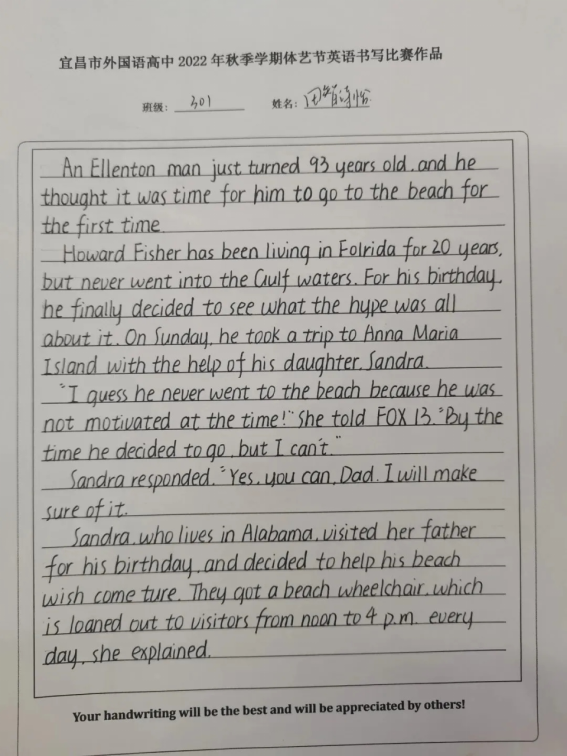 宜昌市外国语高中 2022 年秋季学期体艺节英语书写比赛作品
班级: 301 姓名: 田
An Ellenton man just turned 93 years old, and he
thought it was time for him to go to the beach for
the first time.
Howard Fisher has been living in Folrida for 20 years,
but never went into the Gulf waters. For his birthday,
he finally decided to see what the hype was all
about it. On Sunday, he took a trip to Anna Maria
Island with the help of his daughter, Sandra.
"I guess he never went to the beach because he was
not motivated at the time!" She told FOX 13. "By the
time he decided to go, but I can't."
Sandra responded. "Yes, you can, Dad. I will make
sure of it.
Sandra, who lives in Alabama, visited her father
for his birthday, and decided to help his beach
wish come ture. They got a beach wheelchair, which
is loaned out to visitors from noon to 4 p.m. every
day, she explained.
Your handwriting will be the best and will be appreciated by others!